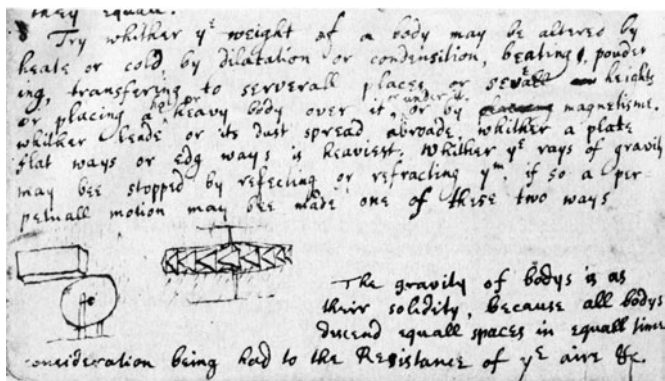 they equall.
Try whither yᵉ weight of a body may be altered by
heate or cold by dilatation or condensition, beating, powder
ing, transfering to serverall places or severall heights
or placing a hot or heavy body over it or under it, or by magnetisme.
whither leade or its dust spread abroade, whither a plate
flat ways or edg ways is heaviest. Whither yᵉ rays of gravity
may bee stopped by reflecting or refracting yᵐ, if so a per
petuall motion may bee made one of these two ways
The gravity of bodys is as
their solidity, because all bodys
descend equall spaces in equall time
consideration being had to the Resistance of yᵉ aire &c.